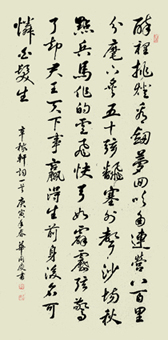 醉裡挑燈看劍夢回吹角連營八百里
分麾下炙五十弦翻塞外聲沙場秋
點兵馬作的盧飛快弓如霹靂弦驚
了却君王天下事贏得生前身後名可
憐白髮生
辛稼軒詞一首庚寅年春華書